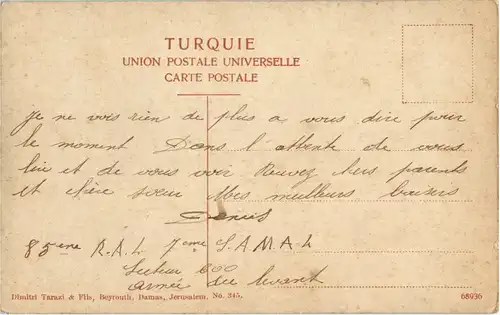 TURQUIE
UNION POSTALE UNIVERSELLE
CARTE POSTALE
Je ne vois rien de plus a vous dire pour
le moment Dans l'attente de vous
lire et de vous voir Recevez chers parents
et chère sœur Mes meilleurs baisers
Denis
85ème R.A.L 7ème S.A.M.A.L
Secteur 600
armée du levant
Dimitri Tarazi & Fils, Beyrouth, Damas, Jerusalem. No. 345.
68936